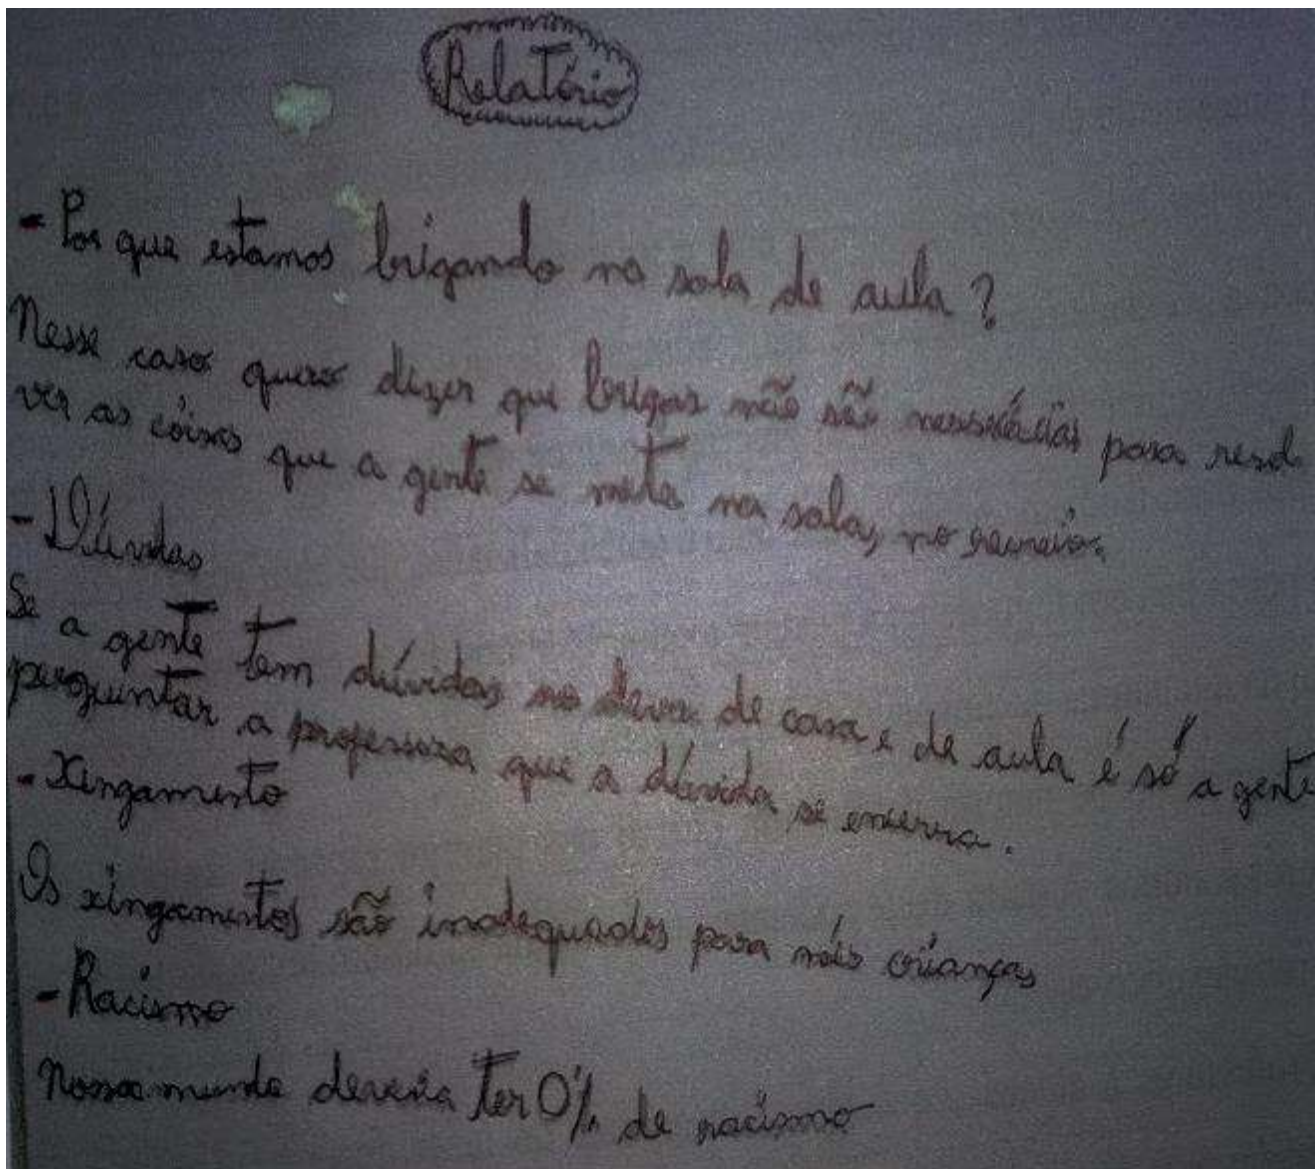 Relatório
- Por que estamos brigando na sala de aula?
Nesse caso quero dizer que brigas não são nessecárias para resol
ver as coisas que a gente se mete na sala, no recreio.
- Dúvidas
Se a gente tem dúvidas no dever de casa e de aula é só a gente
perguntar a professora que a dúvida se encerra.
- Xingamento
Os xingamentos são inadequados para nós crianças
- Racismo
Nosso mundo deveria ter 0% de racismo